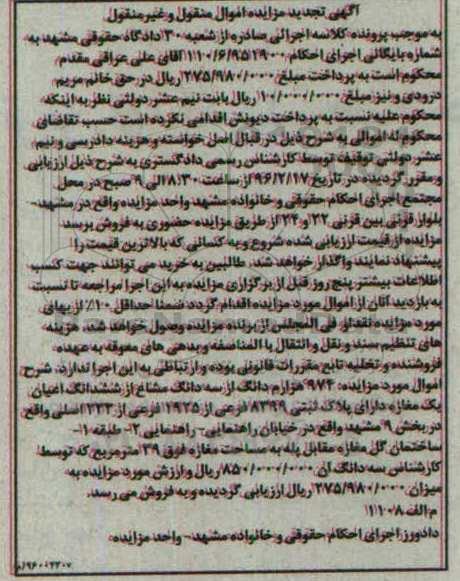 آگهی تجدید مزایده اموال منقول و غیر منقول
به موجب پرونده کلاسه اجرائی صادره از شعبه ۳۰ دادگاه حقوقی مشهد به
شماره بایگانی اجرای احکام ۱۱۰/۶/۹۵۱۲۹۰۰ آقای علی عراقی مقدم
محکوم است به پرداخت مبلغ ۲۷۵/۹۸۰/۰۰۰ ریال در حق خانم مریم
درودی و نیز مبلغ ۱۰/۰۰۰/۰۰۰ ریال بابت نیم عشر دولتی نظر به اینکه
محکوم علیه نسبت به پرداخت دیونش اقدامی نکرده است حسب تقاضای
محکوم له اموالی به شرح ذیل در قبال اصل خواسته و هزینه دادرسی و نیم
عشر دولتی توقیف توسط کارشناس رسمی دادگستری به شرح ذیل ارزیابی
و مقرر گردیده در تاریخ ۹۶/۲/۱۷ از ساعت ۸:۳۰ الی ۹ صبح در محل
مجتمع اجرای احکام حقوقی و خانواده مشهد واحد مزایده واقع در مشهد-
بلوار قرنی بین قرنی ۲۲ و ۲۴ از طریق مزایده حضوری به فروش برسد
مزایده از قیمت ارزیابی شده شروع و به کسانی که بالاترین قیمت را
پیشنهاد نمایند واگذار خواهد شد. طالبین به خرید می توانند جهت کسب
اطلاعات بیشتر پنج روز قبل از برگزاری مزایده به این اجرا مراجعه تا نسبت
به بازدید آنان از اموال مورد مزایده اقدام گردد ضمنا حداقل ۱۰٪ از بهای
مورد مزایده نقدا و فی المجلس از برنده مزایده وصول خواهد شد. هزینه
های تنظیم سند و نقل و انتقال بالمناصفه و بدهی های معوقه به عهده
فروشنده و تخلیه تابع مقررات قانونی بوده و ارتباطی به این اجرا ندارد. شرح
اموال مورد مزایده: ۹۷۴ هزارم دانگ از سه دانگ مشاع از ششدانگ اعیان
یک مغازه دارای پلاک ثبتی ۸۳۹۹ فرعی از ۱۹۲۵ فرعی از ۲۳۳ اصلی واقع
در بخش ۹ مشهد واقع در خیابان راهنمایی- راهنمایی ۲- طبقه ۱-
ساختمان گل مغازه مقابل پله به مساحت مغازه فوق ۳۹ مترمربع که توسط
کارشناس سه دانگ آن ۸۵۰/۰۰۰/۰۰۰ ریال و ارزش مورد مزایده به
میزان ۲۷۵/۹۸۰/۰۰۰ ریال ارزیابی گردیده و به فروش می رسد.
م الف ۱۱۱۰۸
دادورز اجرای احکام حقوقی و خانواده مشهد- واحد مزایده